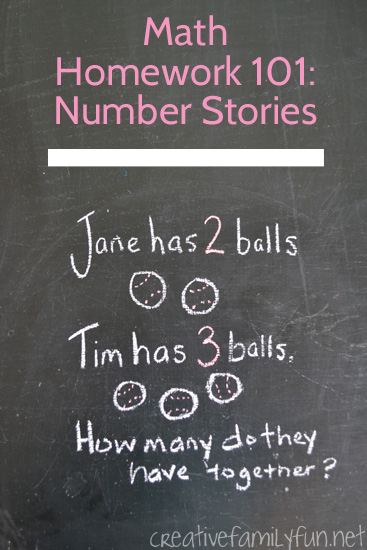 Math
Homework 101:
Number Stories
Jane has 2 balls
Tim has 3 balls.
How many do they
have together?
creativefamilyfun.net